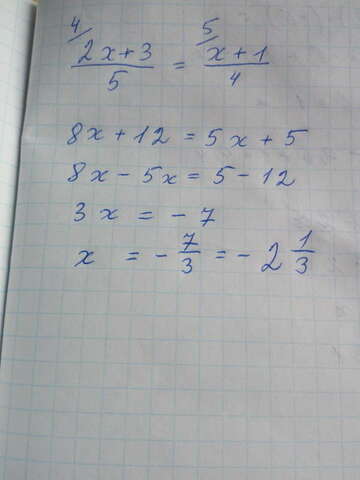 4/ 2x+3/5 = 5/ x+1/4
8x+12 = 5x+5
8x-5x = 5-12
3x = -7
x = -7/3 = -2 1/3